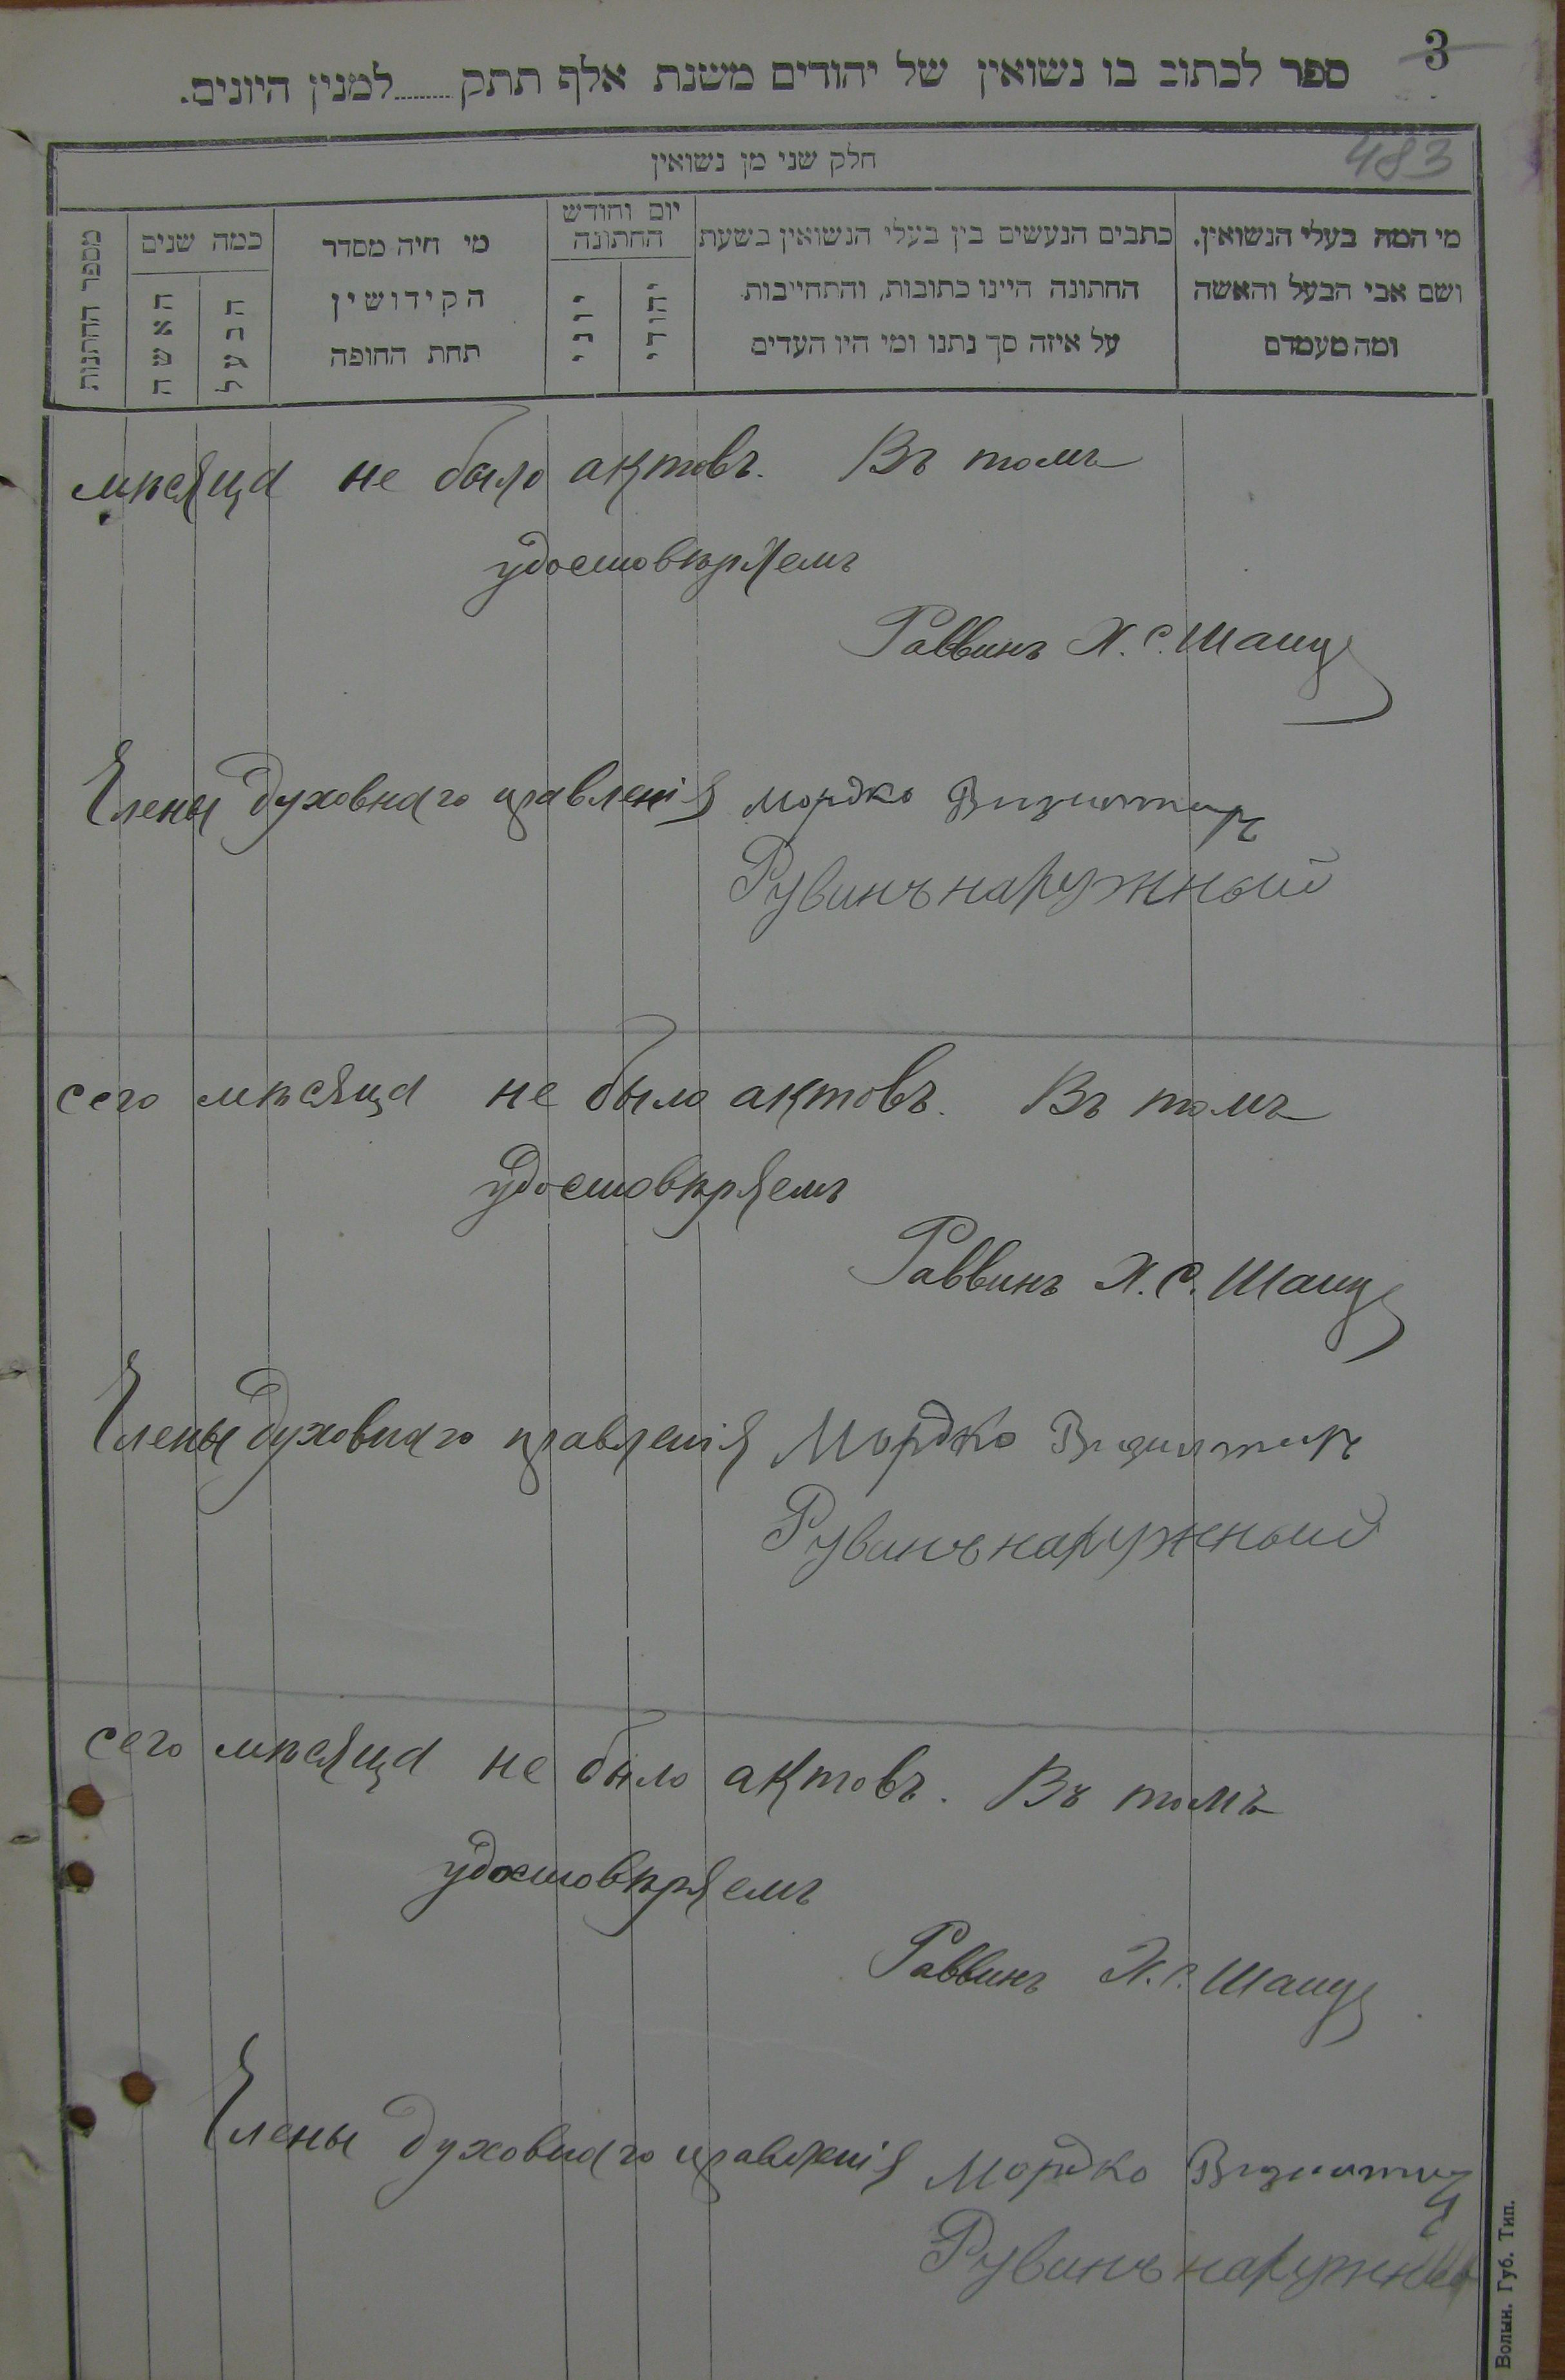 3
ספר לכתוב בו נשואין של יהודים משנת אלף תתק........למנין היונים.
483
חלק שני מן נשואין
מי המה בעלי הנשואין.
ושם אבי הבעל והאשה
ומה מעמדם
כתבים הנעשים בין בעלי הנשואין בשעת
החתונה היינו כתובות, והתחייבות
על איזה סך נתנו ומי היו העדים
יום וחודש
החתונה
יהודי
יוני
מי היה מסדר
הקידושין
תחת החופה
כמה שנים
הבעל
האשה
מספר החתנות
мѣсяца не было актовъ. Въ томъ
удостовѣряемъ
Раввинъ Х. С. Шанц
Члены духовнаго правленія Мордко
Рувинъ наружный
сего мѣсяца не было актовъ. Въ томъ
удостовѣряемъ
Раввинъ Х. С. Шанц
Члены духовнаго правленія Мордко
Рувинъ наружный
сего мѣсяца не было актовъ. Въ томъ
удостовѣряемъ
Раввинъ Х. С. Шанц
Члены духовнаго правленія Мордко
Рувинъ наружный
Волын. Губ. Тип.